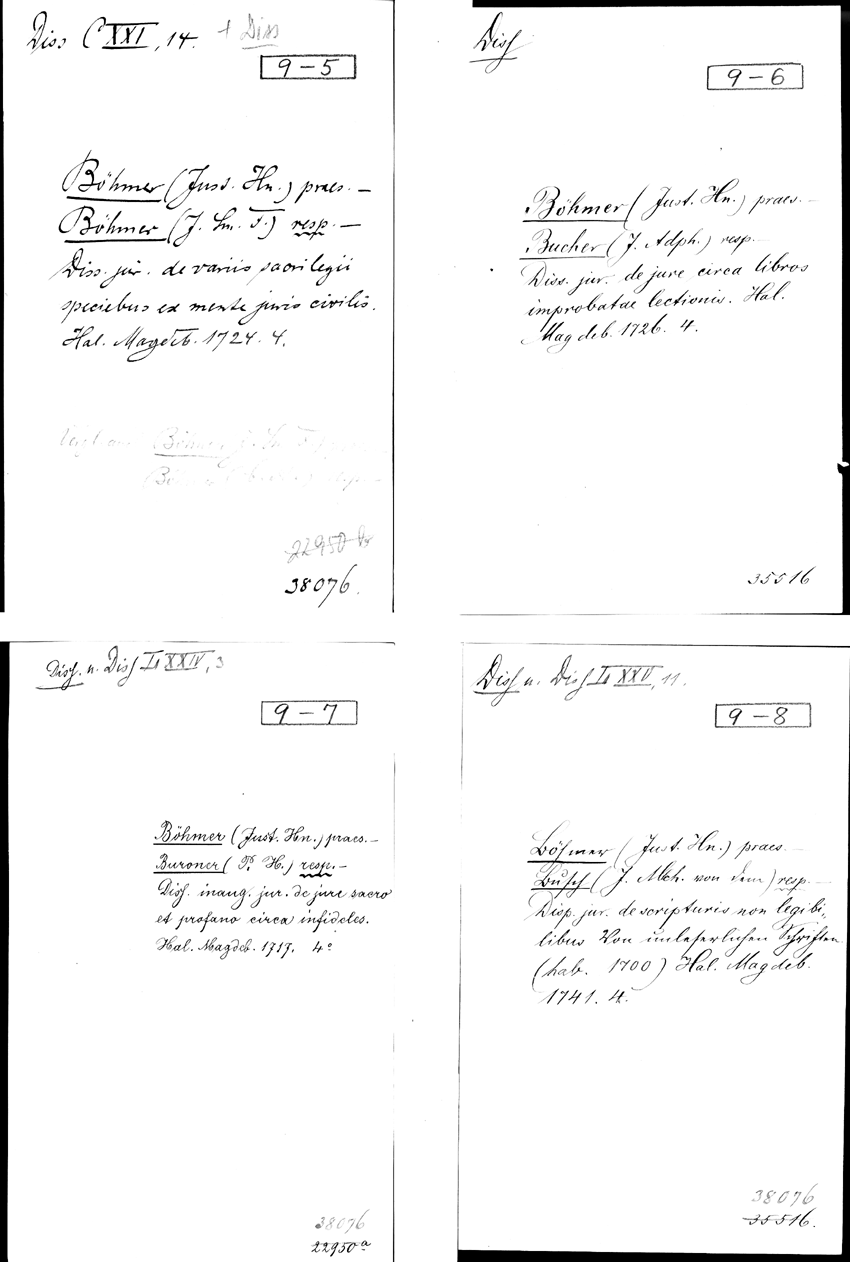 Diss C XXI, 14. + Diss
9-5
Böhmer (Just. Hn.) praes. —
Böhmer (J. Sm. F.) resp. —
Diss. jur. de variis sacrilegii
speciebus ex mente juris civilis.
Hal. Magdeb. 1724. 4.
Böhmer
22950
38076.
Diss
9-6
Böhmer (Just. Hn.) praes. —
Bucher (J. Adph.) resp. —
Diss. jur. de jure circa libros
improbatae lectionis. Hal.
Magdeb. 1726. 4.
35516
Diss. u. Diss I XXIV, 3
9-7
Böhmer (Just. Hn.) praes. —
Buroner (P. H.) resp. —
Diss. inaug. jur. de jure sacro
et profano circa infideles.
Hal. Magdeb. 1717. 4°
38076
22950a
Diss u. Diss I XXV, 11.
9-8
Böhmer (Just. Hn.) praes. —
Busch (J. Mch. von dem) resp. —
Disp. jur. de scripturis non legibi-
libus Von unleserlichen Schriften
(hab. 1700) Hal. Magdeb.
1741. 4.
38076
35516.